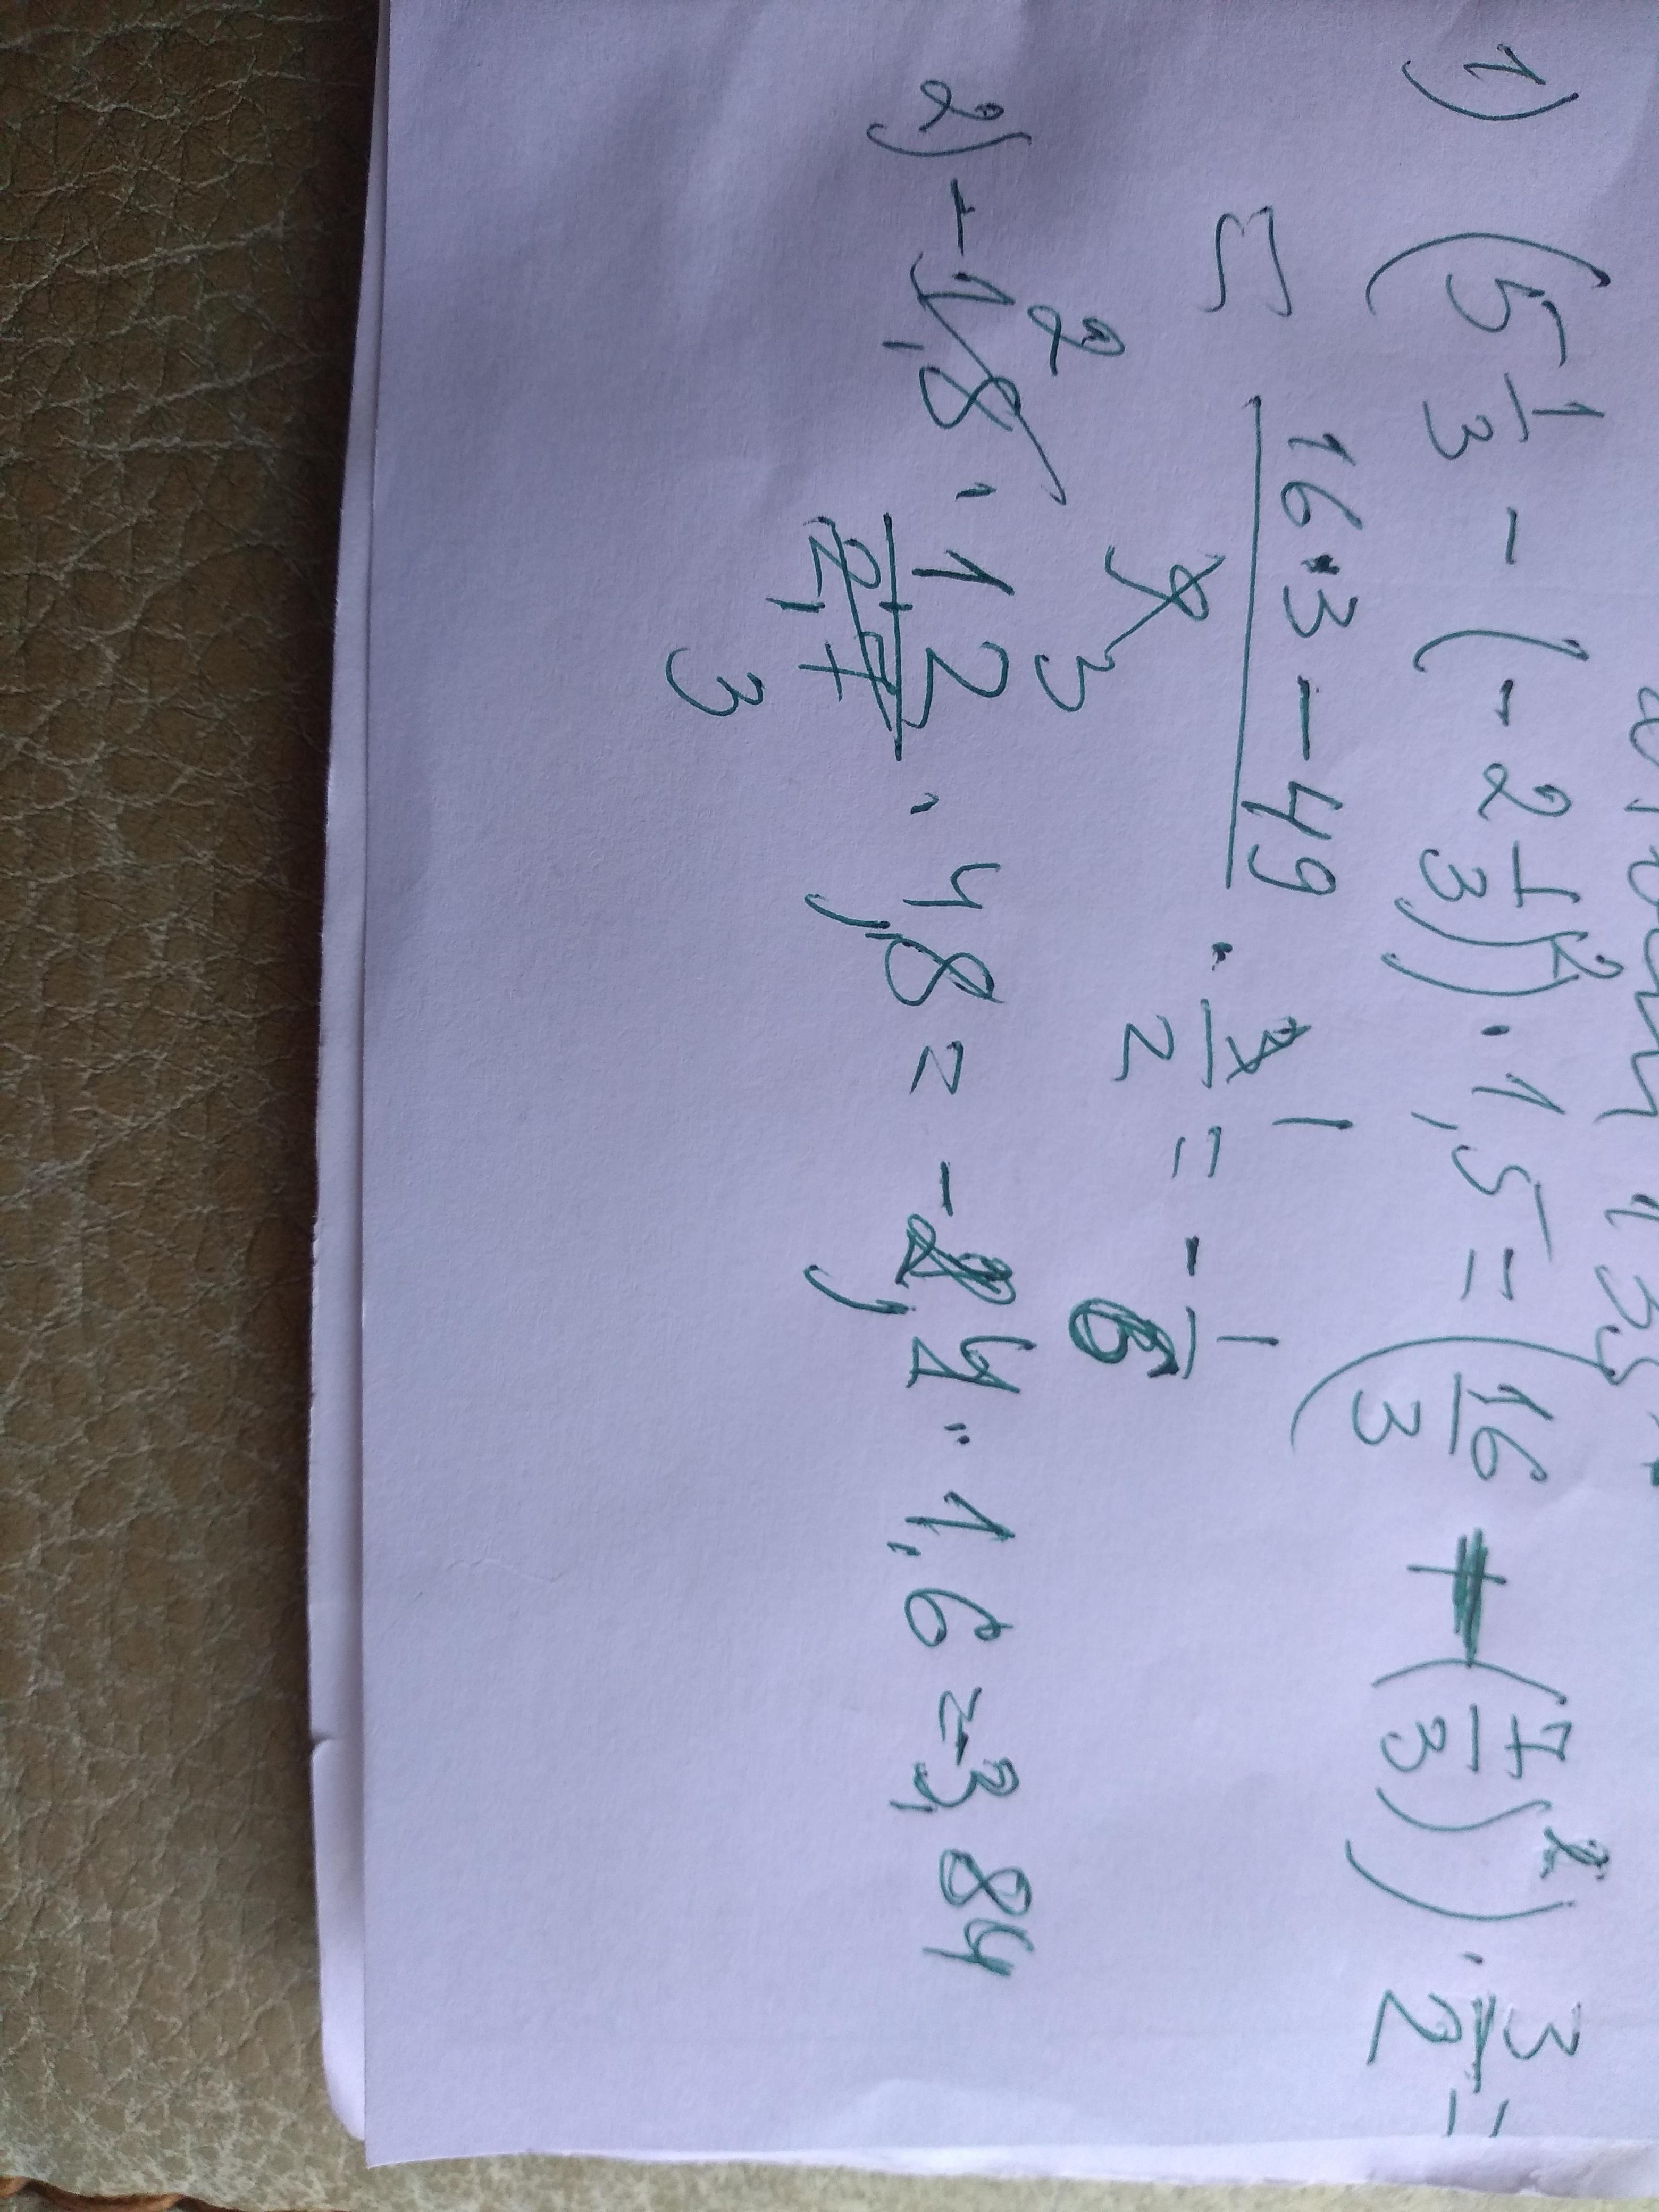 1) (5 1/3 - (-2 1/3)²) · 1,5 = (16/3 - (7/3)²) · 3/2 =
= (16·3 - 49)/(9 3) · 3 1/2 = - 1/6
2) -1,8 2 · 12/2,7 3 · 4,8 = -2,4 · 1,6 = -3,84